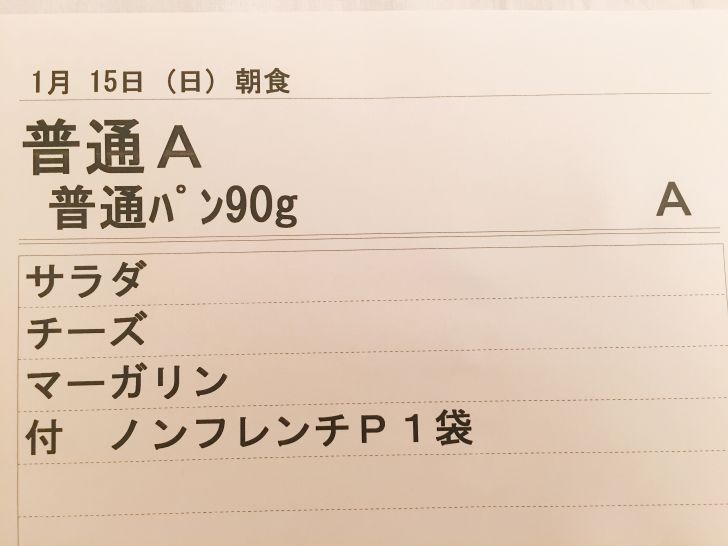 1月 15日 (日) 朝食
普通A
普通ﾊﾟﾝ90g A
サラダ
チーズ
マーガリン
付　ノンフレンチP１袋